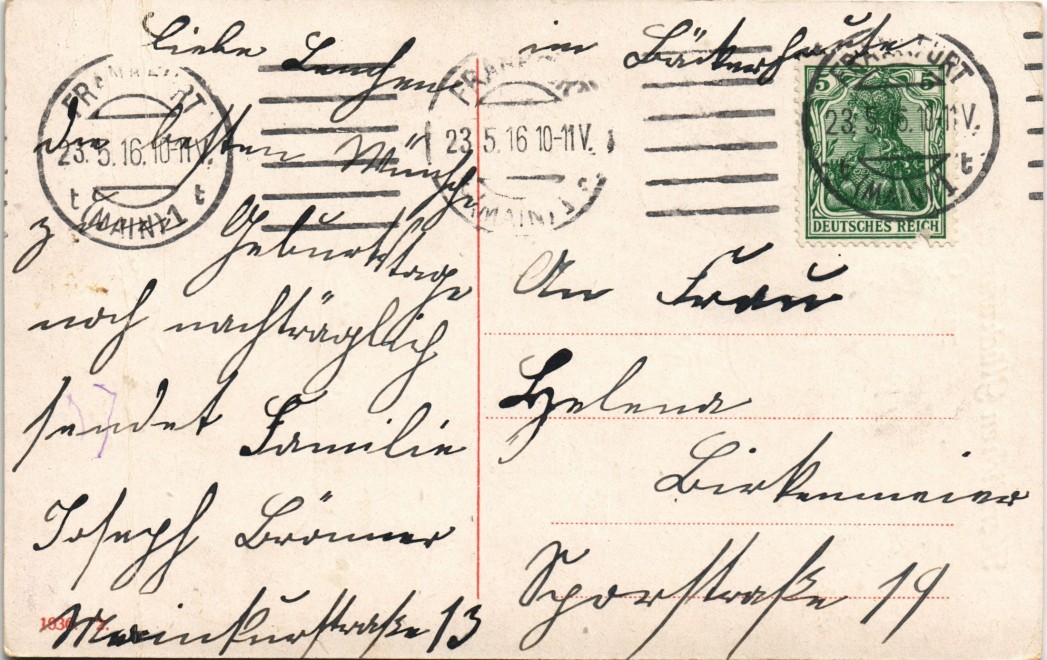 Liebe Lenchen im Bäckerhause
die besten Wünsche
z Geburtstage
noch nachträglich
sendet Familie
Joseph Brönner
Mainkurstraße 13
An Frau
Helena
Birkenmeier
Sporstraße 19
FRANKFURT
23.5.16.10-11V.
t t
(MAIN) 1
23.5.16 10-11V.
(MAIN) 1
FRANKFURT
23.5.16.10-11V.
t
(MAIN) 1
5 5
DEUTSCHES REICH